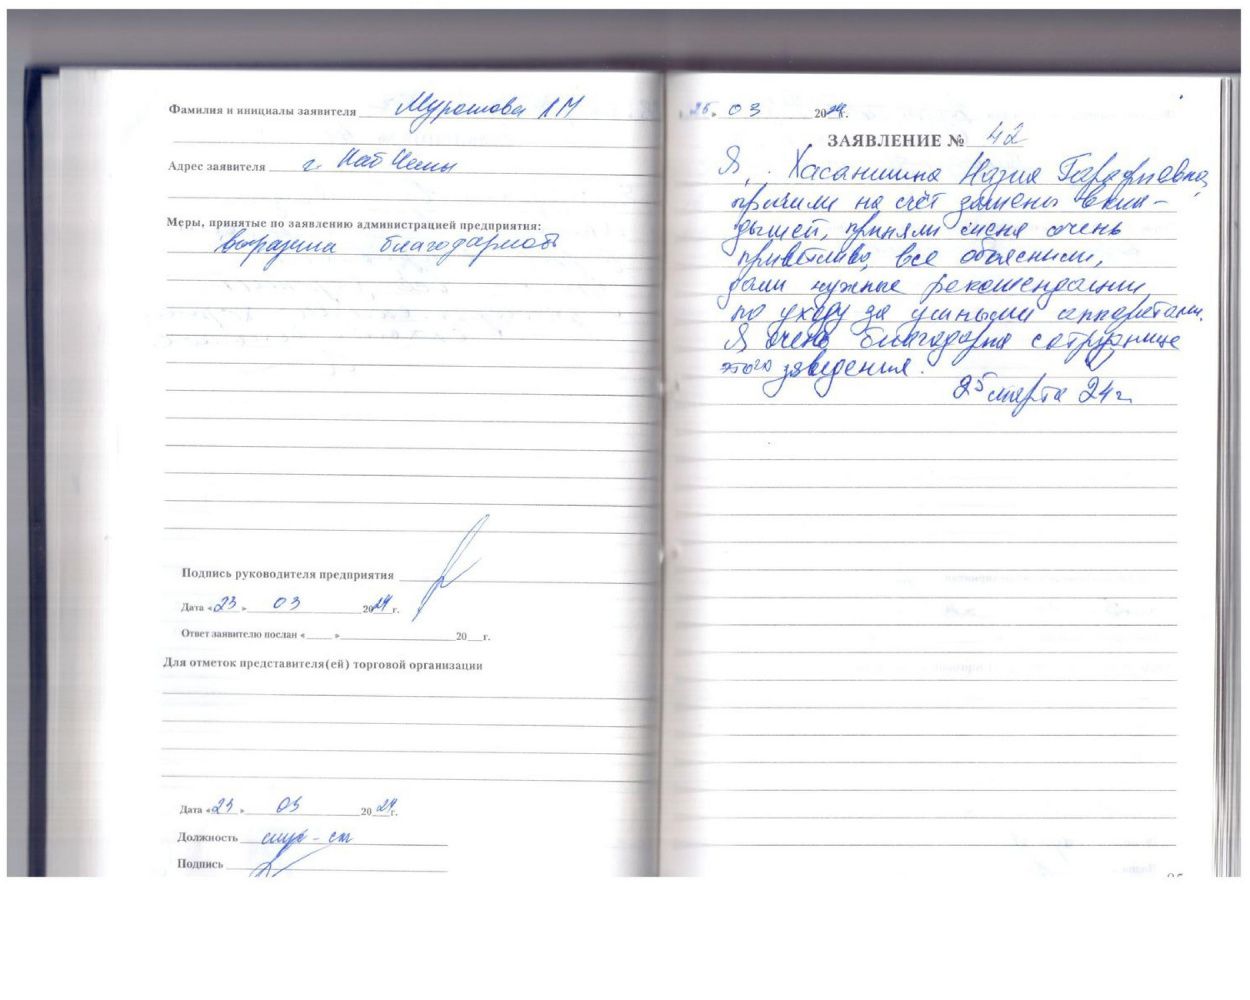 Фамилия и инициалы заявителя Мурашова ЛМ
Адрес заявителя г. Наб Челны
Меры, принятые по заявлению администрацией предприятия:
выразила благодарность
Подпись руководителя предприятия
Дата «23» 03 2024 г.
Ответ заявителю послан «   » 20   г.
Для отметок представителя(ей) торговой организации
Дата «23» 03 2024 г.
Должность
Подпись
25. 03 2024г.
ЗАЯВЛЕНИЕ № 42
Я, Хасаншина Назия
на счёт замены вкла-
дышей, приняли меня очень
приветливо, все объяснили,
дали нужные рекомендации
по уходу за ушными аппаратами.
Я очень благодарна сотруднице
этого заведения.
25 марта 24 г.